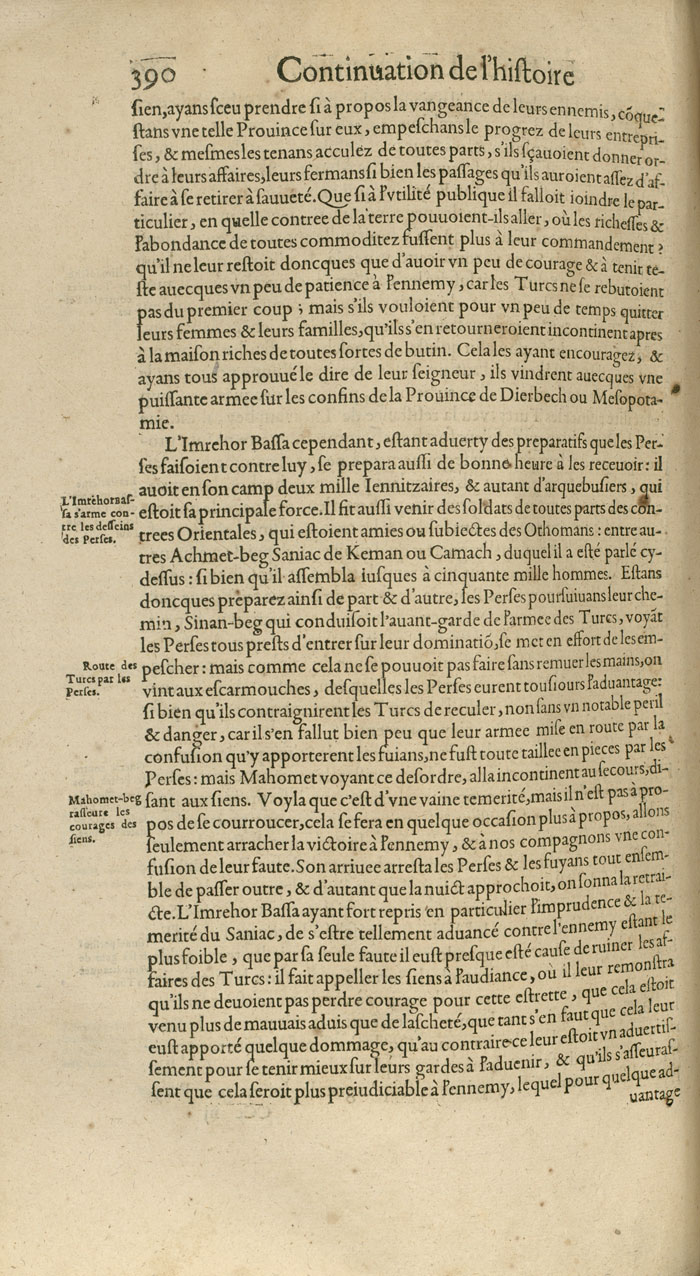 390 Continuation de l'histoire
sien, ayans sceu prendre si à propos la vangeance de leurs ennemis, cõque-
stans vne telle Prouince sur eux, empeschans le progrez de leurs entrepri-
ses, & mesmes les tenans acculez de toutes parts, s'ils sçauoient donner or-
dre à leurs affaires, leurs fermans si bien les passages qu'ils auroient assez d'af-
faire à se retirer à sauueté. Que si à l'vtilité publique il falloit ioindre le par-
ticulier, en quelle contree de la terre pouuoient-ils aller, où les richesses &
l'abondance de toutes commoditez fussent plus à leur commandement?
qu'il ne leur restoit doncques que d'auoir vn peu de courage & à tenir te-
ste auecques vn peu de patience à l'ennemy, car les Turcs ne se rebutoient
pas du premier coup; mais s'ils vouloient pour vn peu de temps quitter
leurs femmes & leurs familles, qu'ils s'en retourneroient incontinent apres
à la maison riches de toutes sortes de butin. Cela les ayant encouragez, &
ayans tous approuué le dire de leur seigneur, ils vindrent auecques vne
puissante armee sur les confins de la Prouince de Dierbech ou Mesopota-
mie.
L'Imrehor Bassa cependant, estant aduerty des preparatifs que les Per-
ses faisoient contre luy, se prepara aussi de bonne heure à les receuoir: il
auoit en son camp deux mille Iennitzaires, & autant d'arquebusiers, qui
L'Imrehor Bas-
sa s'arme con-
tre les desseins
des Perses.
estoit sa principale force. Il fit aussi venir des soldats de toutes parts des con-
trees Orientales, qui estoient amies ou subiectes des Othomans: entre au-
tres Achmet-beg Saniac de Keman ou Camach, duquel il a esté parlé cy-
dessus: si bien qu'il assembla iusques à cinquante mille hommes. Estans
doncques preparez ainsi de part & d'autre, les Perses poursuiuans leur che-
min, Sinan-beg qui conduisoit l'auant-garde de l'armee des Turcs, voyãt
les Perses tous prests d'entrer sur leur dominatiõ, se met en effort de les em-
Route des
Turcs par les
Perses.
pescher: mais comme cela ne se pouuoit pas faire sans remuer les mains, on
vint aux escarmouches, desquelles les Perses eurent tousiours l'aduantage:
si bien qu'ils contraignirent les Turcs de reculer, non sans vn notable peril
& danger, car il s'en fallut bien peu que leur armee mise en route par la
confusion qu'y apporterent les fuians, ne fust toute taillee en pieces par les
Perses: mais Mahomet voyant ce desordre, alla incontinent au secours, di-
Mahomet-beg
rasseure les
courages des
siens.
sant aux siens. Voyla que c'est d'vne vaine temerité, mais il n'est pas à pro-
pos de se courroucer, cela se fera en quelque occasion plus à propos, allons
seulement arracher la victoire à l'ennemy, & à nos compagnons vne con-
fusion de leur faute. Son arriuee arresta les Perses & les fuyans tout ensem-
ble de passer outre, & d'autant que la nuict approchoit, on sonna la retrai-
cte. L'Imrehor Bassa ayant fort repris en particulier l'imprudence & la te-
merité du Saniac, de s'estre tellement aduancé contre l'ennemy estant le
plus foible, que par sa seule faute il eust presque esté cause de ruiner les af-
faires des Turcs: il fait appeller les siens à l'audiance, où il leur remonstra
qu'ils ne deuoient pas perdre courage pour cette estrette, que cela estoit
venu plus de mauuais aduis que de lascheté, que tant s'en faut que cela leur
eust apporté quelque dommage, qu'au contraire ce leur estoit vn aduertis-
sement pour se tenir mieux sur leurs gardes à l'aduenir, & qu'ils s'asseuras-
sent que cela seroit plus preiudiciable à l'ennemy, lequel pour quelque ad-
uantage